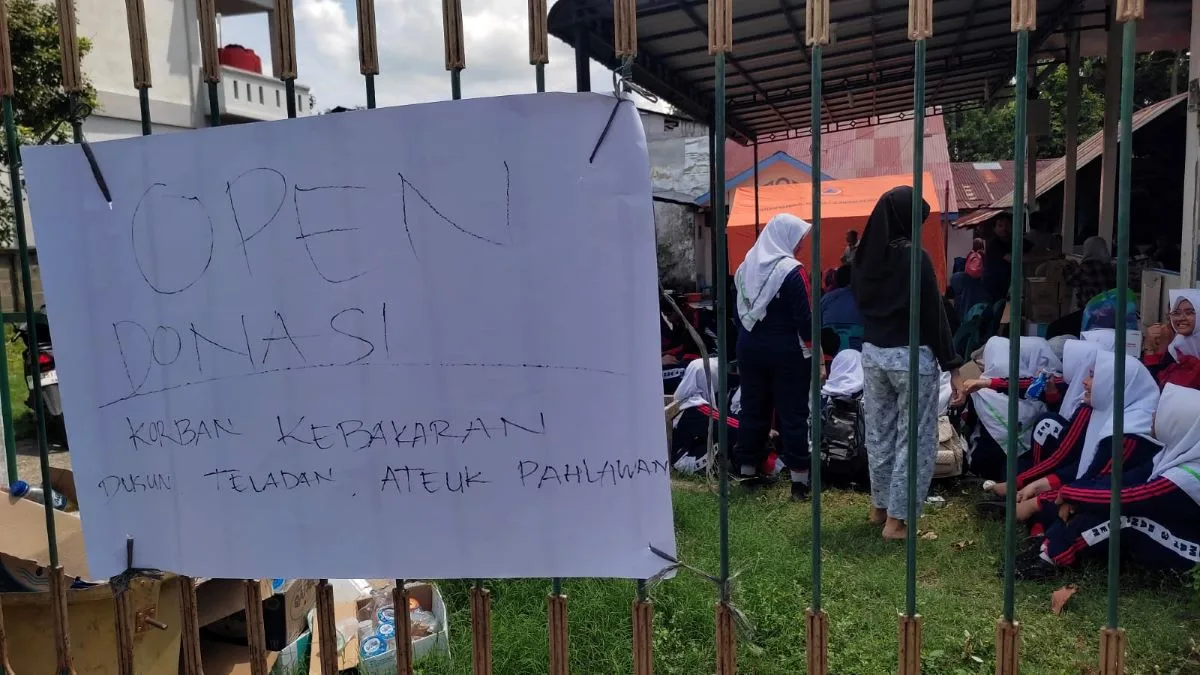 OPEN
DONASI
KORBAN KEBAKARAN
DUSUN TELADAN, ATEUK PAHLAWAN